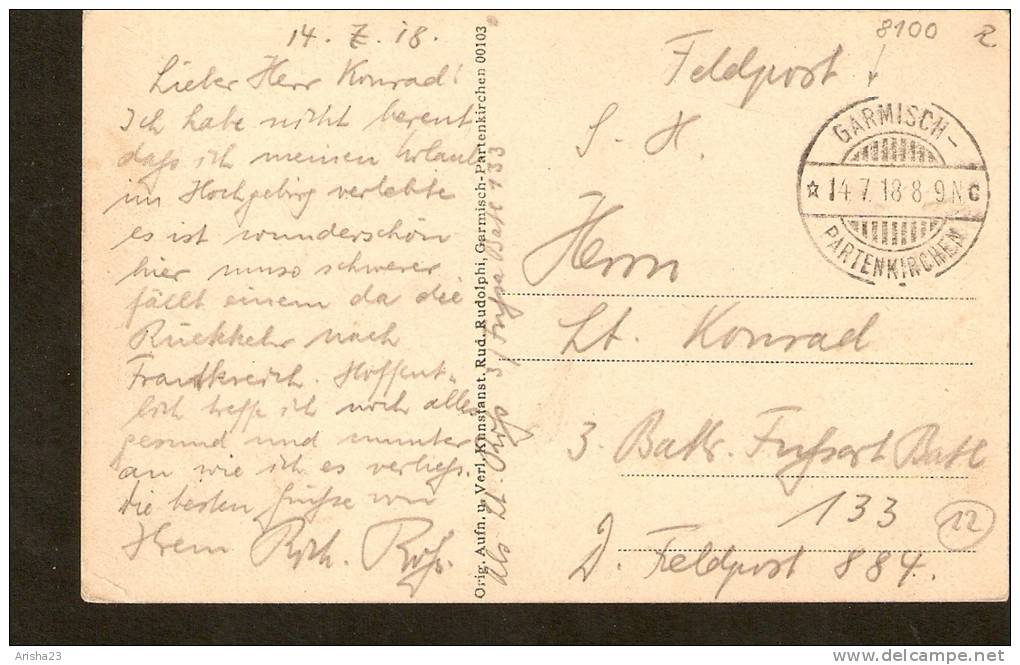 14. 7. 18.
Lieber Herr Konrad!
Ich habe nicht bereut
daß ich meinen Urlaub
im Hochgebirg verlebte
es ist wunderschön
hier umso schwerer
fällt einem da die
Rückkehr nach
Frankreich. Hoffent„
lich treffe ich noch alles
gesund und munter
an wie ich es verließ.
Die besten Grüße von
Ihrem Rich.
Orig. Aufn. u. Verl. Kunstanst. Rud. Rudolphi, Garmisch-Partenkirchen 00103
Abs. Lt. 3/Fußa Batl 133
8100
Feldpost
S. H.
Herrn
Lt. Konrad
3. Battr. Fußart Batl
133
D. Feldpost 884.
12
GARMISCH-
14.7.18 8-9 N C
PARTENKIRCHEN
Arisha23
www.delcampe.net